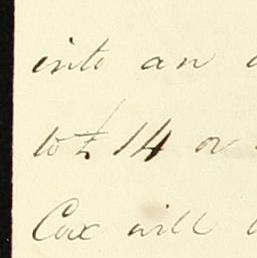 into an
to £ 14 or
Cox will